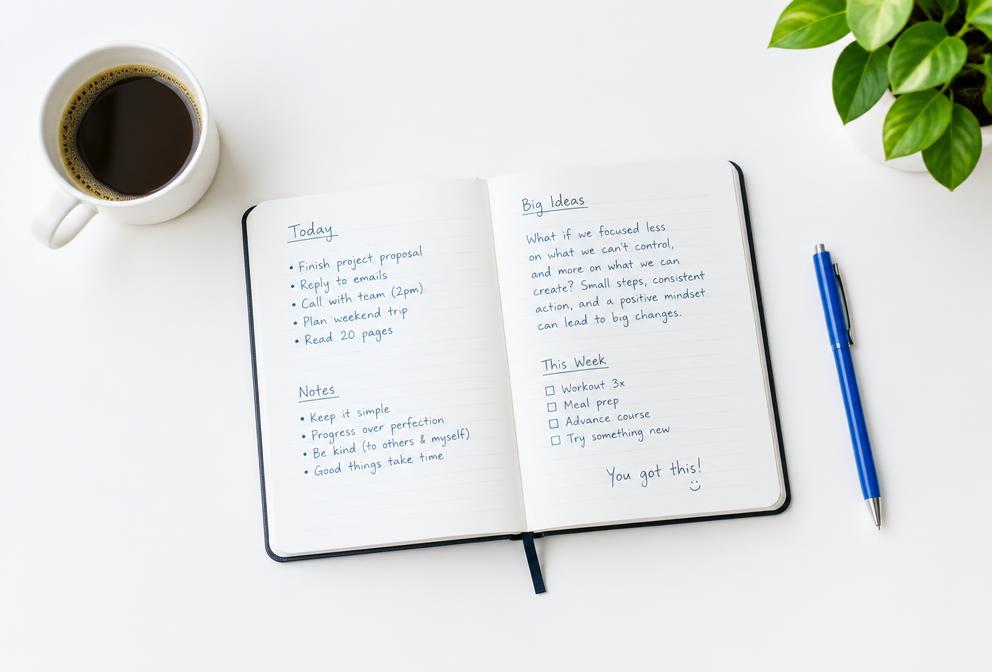 Today
• Finish project proposal
• Reply to emails
• Call with team (2pm)
• Plan weekend trip
• Read 20 pages
Notes
• Keep it simple
• Progress over perfection
• Be kind (to others & myself)
• Good things take time
Big Ideas
What if we focused less
on what we can't control,
and more on what we can
create? Small steps, consistent
action, and a positive mindset
can lead to big changes.
This Week
☐ Workout 3x
☐ Meal prep
☐ Advance course
☐ Try something new
You got this!